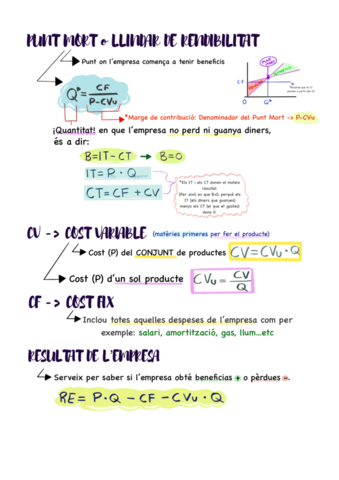 PUNT MORT o LLINDAR DE RENDIBILITAT
Punt on l'empresa comença a tenir beneficis
Q* = CF / P-CVu
CF
0
Q*
*Marge de contribució: Denominador del Punt Mort -> P-CVu
¡Quantitat! en que l'empresa no perd ni guanya diners,
és a dir:
B=IT-CT → B=0
IT= P · Q
CT= CF + CV
*Els IT i els CT donen el mateix
resultat.
(Per això es que B=0, perquè els
IT (els diners que guanyes)
menys els CT (el que et gastes)
dona 0.
CV -> COST VARIABLE (matèries primeres per fer el producte)
Cost (P) del CONJUNT de productes CV= CVu · Q
Cost (P) d'un sol producte CVu = CV / Q
CF -> COST FIX
Inclou totes aquelles despeses de l'empresa com per
exemple: salari, amortització, gas, llum...etc
RESULTAT DE L'EMPRESA
Serveix per saber si l'empresa obté beneficias + o pèrdues -.
RE= P·Q - CF - CVu · Q